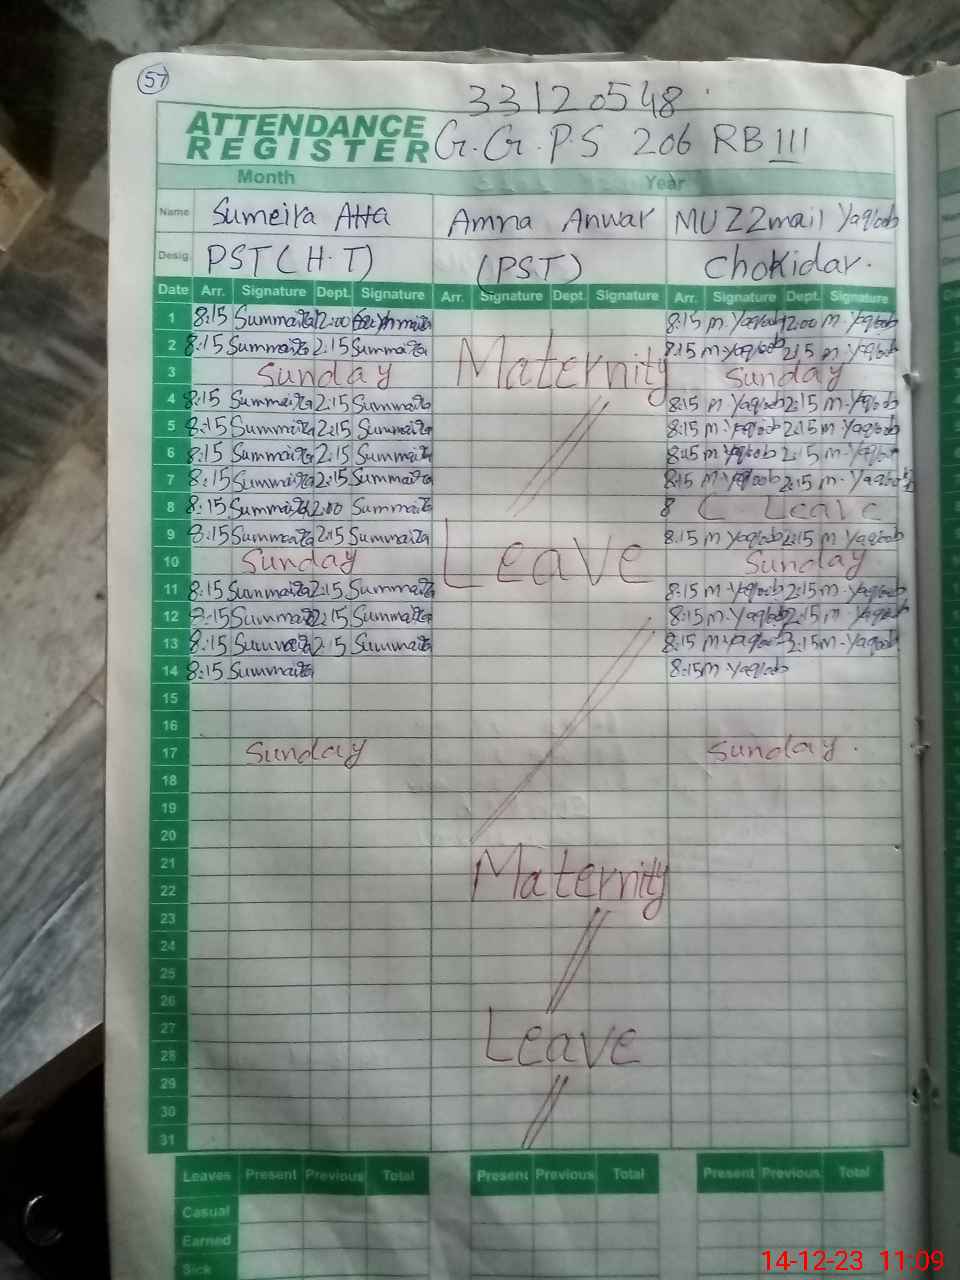 57
33120548
ATTENDANCE REGISTER
G.G.P.S 206 RB III
Month Year
Name Sumeira Atta Amna Anwar MUZZmail Yaqoob
Desig. PST (H.T) (PST) Chokidar.
Date Arr. Signature Dept. Signature Arr. Signature Dept. Signature Arr. Signature Dept. Signature
1 8:15 Summaita 12:00 Summaita 8:15 m.Yaqoob 12:00 m.Yaqoob
2 8:15 Summaita 2:15 Summaita Maternity 8:15 m.Yaqoob 2:15 m.Yaqoob
3 Sunday Sunday
4 8:15 Summaita 2:15 Summaita 8:15 m Yaqoob 2:15 m.Yaqoob
5 8:15 Summaita 2:15 Summaita 8:15 m.Yaqoob 2:15 m.Yaqoob
6 8:15 Summaita 2:15 Summaita 8:15 m Yaqoob 2:15 m.Yaqoob
7 8:15 Summaita 2:15 Summaita 8:15 m.Yaqoob 2:15 m.Yaqoob
8 8:15 Summaita 12:00 Summaita 8 C Leave
9 8:15 Summaita 2:15 Summaita Leave 8:15 m Yaqoob 2:15 m.Yaqoob
10 Sunday Sunday
11 8:15 Summaita 2:15 Summaita 8:15 m.Yaqoob 2:15 m.Yaqoob
12 8:15 Summaita 2:15 Summaita 8:15 m.Yaqoob 2:15 m Yaqoob
13 8:15 Summaita 2:15 Summaita 8:15 m.Yaqoob 2:15 m.Yaqoob
14 8:15 Summaita 8:15 m.Yaqoob
15
16
17 Sunday Sunday.
18
19
20
21 Maternity
22
23
24
25
26
27 Leave
28
29
30
31
Leaves Present Previous Total Present Previous Total Present Previous Total
Casual
Earned
Sick
14-12-23 11:09